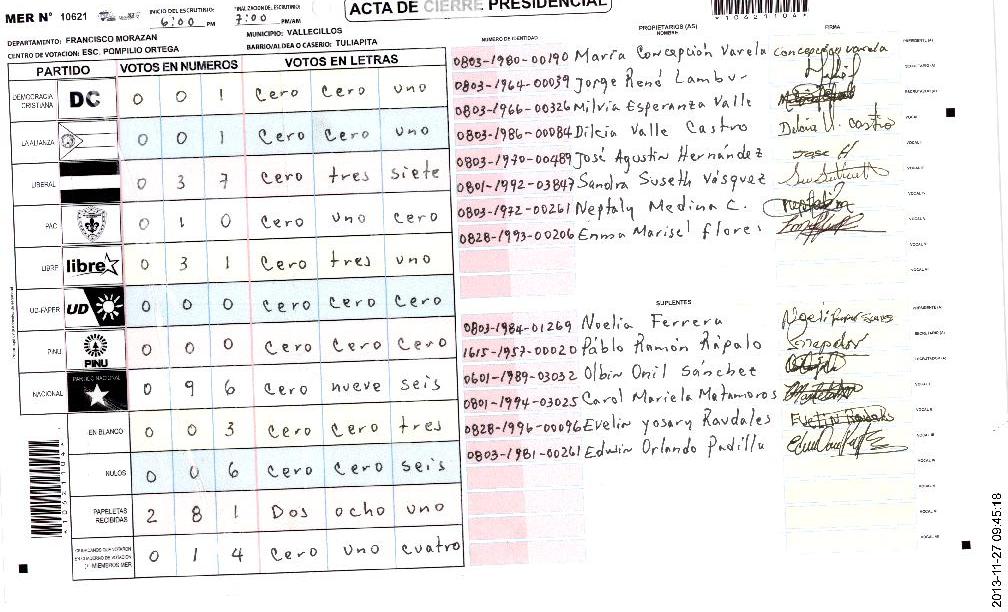 MER N° 10621
INICIO DEL ESCRUTINIO: 6:00 PM
FINALIZACION DEL ESCRUTINIO: 7:00 PM/AM
ACTA DE CIERRE PRESIDENCIAL
DEPARTAMENTO: FRANCISCO MORAZAN
MUNICIPIO: VALLECILLOS
CENTRO DE VOTACION: ESC. POMPILIO ORTEGA
BARRIO/ALDEA O CASERIO: TULIAPITA
PARTIDO VOTOS EN NUMEROS VOTOS EN LETRAS
DEMOCRACIA CRISTIANA DC 0 0 1 Cero Cero uno
LA ALIANZA 0 0 1 Cero Cero uno
LIBERAL 0 3 7 Cero tres siete
PAC 0 1 0 Cero uno cero
LIBRE libre 0 3 1 Cero tres uno
UD-FAPER UD 0 0 0 Cero Cero Cero
PINU PINU 0 0 0 Cero Cero Cero
NACIONAL PARTIDO NACIONAL 0 9 6 Cero nueve seis
EN BLANCO 0 0 3 Cero Cero tres
NULOS 0 0 6 Cero Cero seis
PAPELETAS RECIBIDAS 2 8 1 Dos ocho uno
0 1 4 Cero uno cuatro
NUMERO DE IDENTIDAD
PROPIETARIOS (AS)
NOMBRE
FIRMA
0803-1980-00190 María Concepción Varela concepcion varela
0803-1964-00039 Jorge René Lambur
0803-1966-00326 Milvia Esperanza Valle
0803-1986-00084 Dilcia Valle Castro Dilcia V. Castro
0803-1970-00489 José Agustín Hernández Jose H
0801-1992-03847 Sandra Suseth Vásquez
0803-1972-00261 Neptaly Medina C.
0828-1993-00206 Enma Marisel flores
SUPLENTES
0803-1984-01269 Noelia Ferrera
1615-1957-00020 Pablo Ramón Rápalo
0601-1989-03032 Olbin Onil Sánchez
0801-1994-03025 Carol Mariela Matamoros
0828-1996-00096 Evelin yosary Raudales Evelin Raudales
0803-1981-00261 Edwin Orlando Padilla
2013-11-27 09:45:18